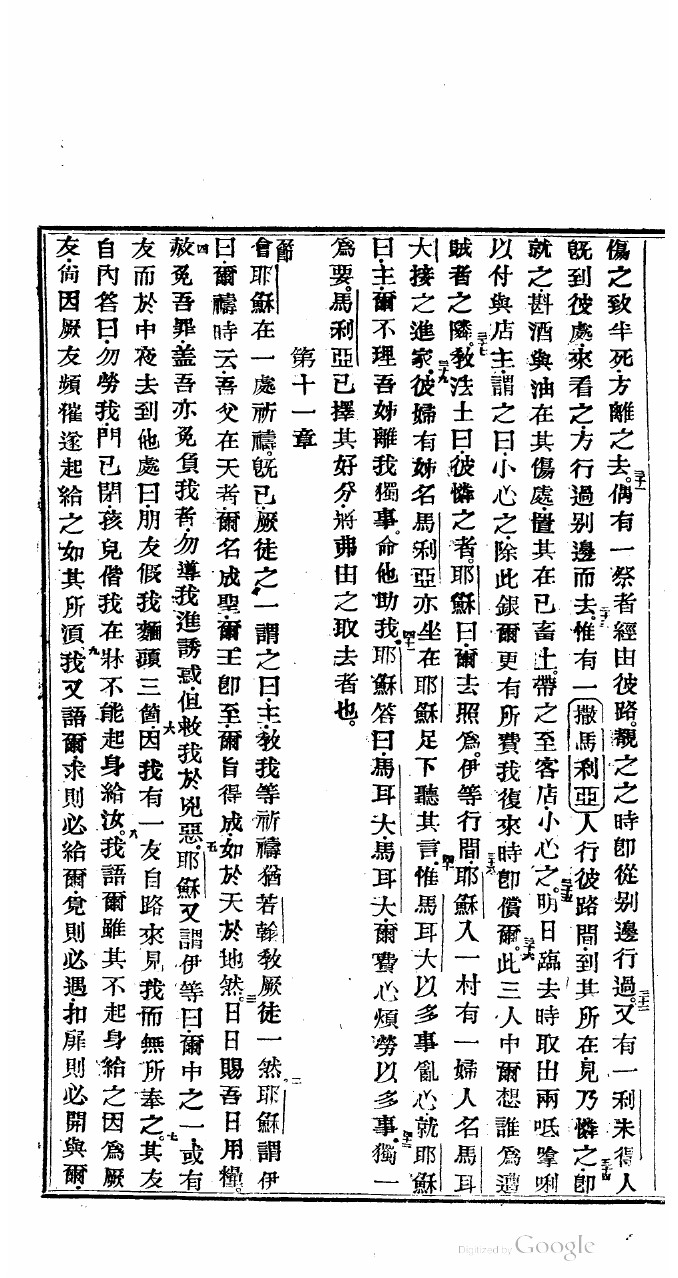 傷之致半死方離之去。三十一偶有一祭者經由彼路。覩之之時卽從别邊行過。三十二又有一利未得人
旣到彼處來看之方行過别邊而去。三十三惟有一撒馬利亞人行彼路間到其所在見乃憐之三十四卽
就之斟酒與油在其傷處置其在已畜上。帶之至客店小心之。三十五明日臨去時取出兩呧嗱唎
以付與店主謂之曰小心之除此銀爾更有所費我復來時卽償爾。三十六此三人中爾想誰爲遭
賊者之隣。三十七敎法士曰彼憐之者。耶穌曰爾去照爲。三十八伊等行間耶穌入一村有一婦人名馬耳
大接之進家。三十九彼婦有姊名馬利亞亦坐在耶穌足下聽其言四十惟馬耳大以多事亂心就耶穌
曰主爾不理吾姊離我獨事。命他助我四十一耶穌答曰馬耳大馬耳大爾費心煩勞以多事。四十二獨一
爲要。馬利亞已擇其好分將弗由之取去者也。
第十一章
節會耶穌在一處祈禱。旣已厥徒之一謂之曰主敎我等祈禱猶若翰敎厥徒一然二耶穌謂伊
曰爾禱時云吾父在天者爾名成聖爾王卽至爾旨得成如於天於地然。三日日賜吾日用糧。
四赦免吾罪蓋吾亦免負我者勿導我進誘惑但救我於兇惡五耶穌又謂伊等曰爾中之一或有
友而於中夜去到他處曰朋友假我麵頭三箇六因我有一友自路來見我而無所奉之。七其友
自內答曰勿勞我門已閉孩兒偕我在牀不能起身給汝。八我語爾雖其不起身給之因爲厥
友尙因厥友頻催遂起給之如其所須九我又語爾求則必給爾覓則必遇扣扉則必開與爾
Digitized by Google